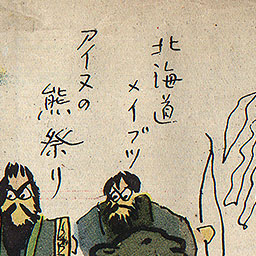 北海道
メイブツ
アイヌの
熊祭り